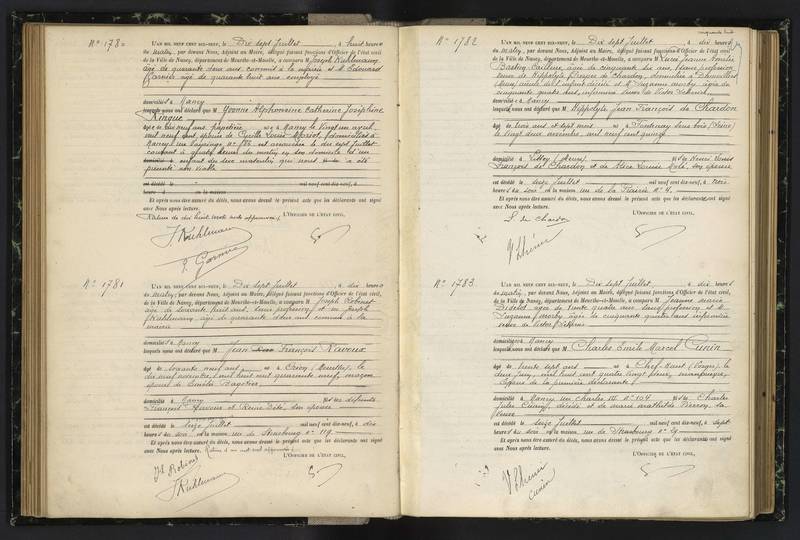 N° 1780
L'AN MIL NEUF CENT DIX-NEUF, le Dix sept Juillet à huit heures
du matin, par devant Nous, Adjoint au Maire, délégué faisant fonctions d'Officier de l'état civil
de la Ville de Nancy, département de Meurthe-et-Moselle, a comparu M. Joseph Kuhlmann
âgé de quarante deux ans commis à la mairie et M. Edouard
Garnier âgé de quarante huit ans employé
domiciliés à Nancy
lesquels nous ont déclaré que M Yvonne Alphonsine Catherine Joséphine
Ringue
âgé de dix neuf ans née à Nancy le vingt un avril
mil neuf cent épouse de domiciliée à
Nancy est accouchée le dix sept Juillet
courant à quatre heures du matin en son domicile d'un
enfant du sexe masculin qui nous a été
présenté non viable
est décédé le mil neuf cent dix-neuf, à
heures d en la maison
Et après nous être assuré du décès, nous avons dressé le présent acte que les déclarants ont signé
avec Nous après lecture.
L'OFFICIER DE L'ÉTAT CIVIL,
J Kuhlmann
E. Garnier
N° 1781
L'AN MIL NEUF CENT DIX-NEUF, le Dix sept Juillet à dix heures
du matin, par devant Nous, Adjoint au Maire, délégué faisant fonctions d'Officier de l'état civil,
de la Ville de Nancy, département de Meurthe-et-Moselle, a comparu M. Joseph Robinet
âgé de soixante huit ans, sans profession et M Joseph
Kuhlmann âgé de quarante deux ans commis à la
mairie
domiciliés à Nancy
lesquels nous ont déclaré que M Jean François Navoux
âgé de soixante neuf ans né à Crévy (Moselle), le
dix neuf novembre mil huit cent quarante neuf, maçon
époux de Emélie Bagotier
domicilié à Nancy fils de défunts
François Navoux et Reine Dété, son épouse
est décédé le seize Juillet mil neuf cent dix-neuf, à dix
heures du soir en la maison rue de Strasbourg n° 119
Et après nous être assuré du décès, nous avons dressé le présent acte que les déclarants ont signé
avec Nous après lecture.
L'OFFICIER DE L'ÉTAT CIVIL,
Jh Robinet
J Kuhlmann
N° 1782
L'AN MIL NEUF CENT DIX-NEUF, le Dix sept Juillet à dix heures
du matin, par devant Nous, Adjoint au Maire, délégué faisant fonctions d'Officier de l'état civil
de la Ville de Nancy, département de Meurthe-et-Moselle, a comparu M. Lucie Jeanne
âgée de cinquante six ans, sans profession
veuve de Hippolyte François de Chardon, domiciliée à
(Meuse) aïeule de l'enfant décédé et M Suzanne âgée de
cinquante quatre ans, infirmière veuve de Victor
domiciliés à Nancy
lesquels nous ont déclaré que M Hippolyte Jean François de Chardon
âgé de trois ans et sept mois né à Fontenay sous bois (Seine)
le vingt deux novembre mil neuf cent quinze
domicilié à (Meuse) fils de Henri
François de Chardon et de Alice Louise son épouse
est décédé le seize Juillet mil neuf cent dix-neuf, à
heures du soir en la maison rue de la Prairie n° 4
Et après nous être assuré du décès, nous avons dressé le présent acte que les déclarants ont signé
avec Nous après lecture.
L'OFFICIER DE L'ÉTAT CIVIL,
L. de Chardon
N° 1783
L'AN MIL NEUF CENT DIX-NEUF, le Dix sept Juillet à dix heures
du matin, par devant Nous, Adjoint au Maire, délégué faisant fonctions d'Officier de l'état civil
de la Ville de Nancy, département de Meurthe-et-Moselle, a comparu M. Jeanne Marie
Didelot âgée de trente quatre ans sans profession et M
Suzanne âgée de cinquante quatre ans infirmière
veuve de Victor
domiciliés à Nancy
lesquels nous ont déclaré que M Charles Emile Marcel Cunin
âgé de trente sept ans né à (Vosges), le
deux Juin mil huit cent quatre vingt deux,
époux de la première déclarante
domicilié à Nancy rue Charles III n° 104 fils de Charles
Jules Cunin, décédé et de Marie
veuve
est décédé le seize Juillet mil neuf cent dix-neuf, à sept
heures du soir en la maison rue de Strasbourg n° 29
Et après nous être assuré du décès, nous avons dressé le présent acte que les déclarants ont signé
avec Nous après lecture.
L'OFFICIER DE L'ÉTAT CIVIL,
Cunin